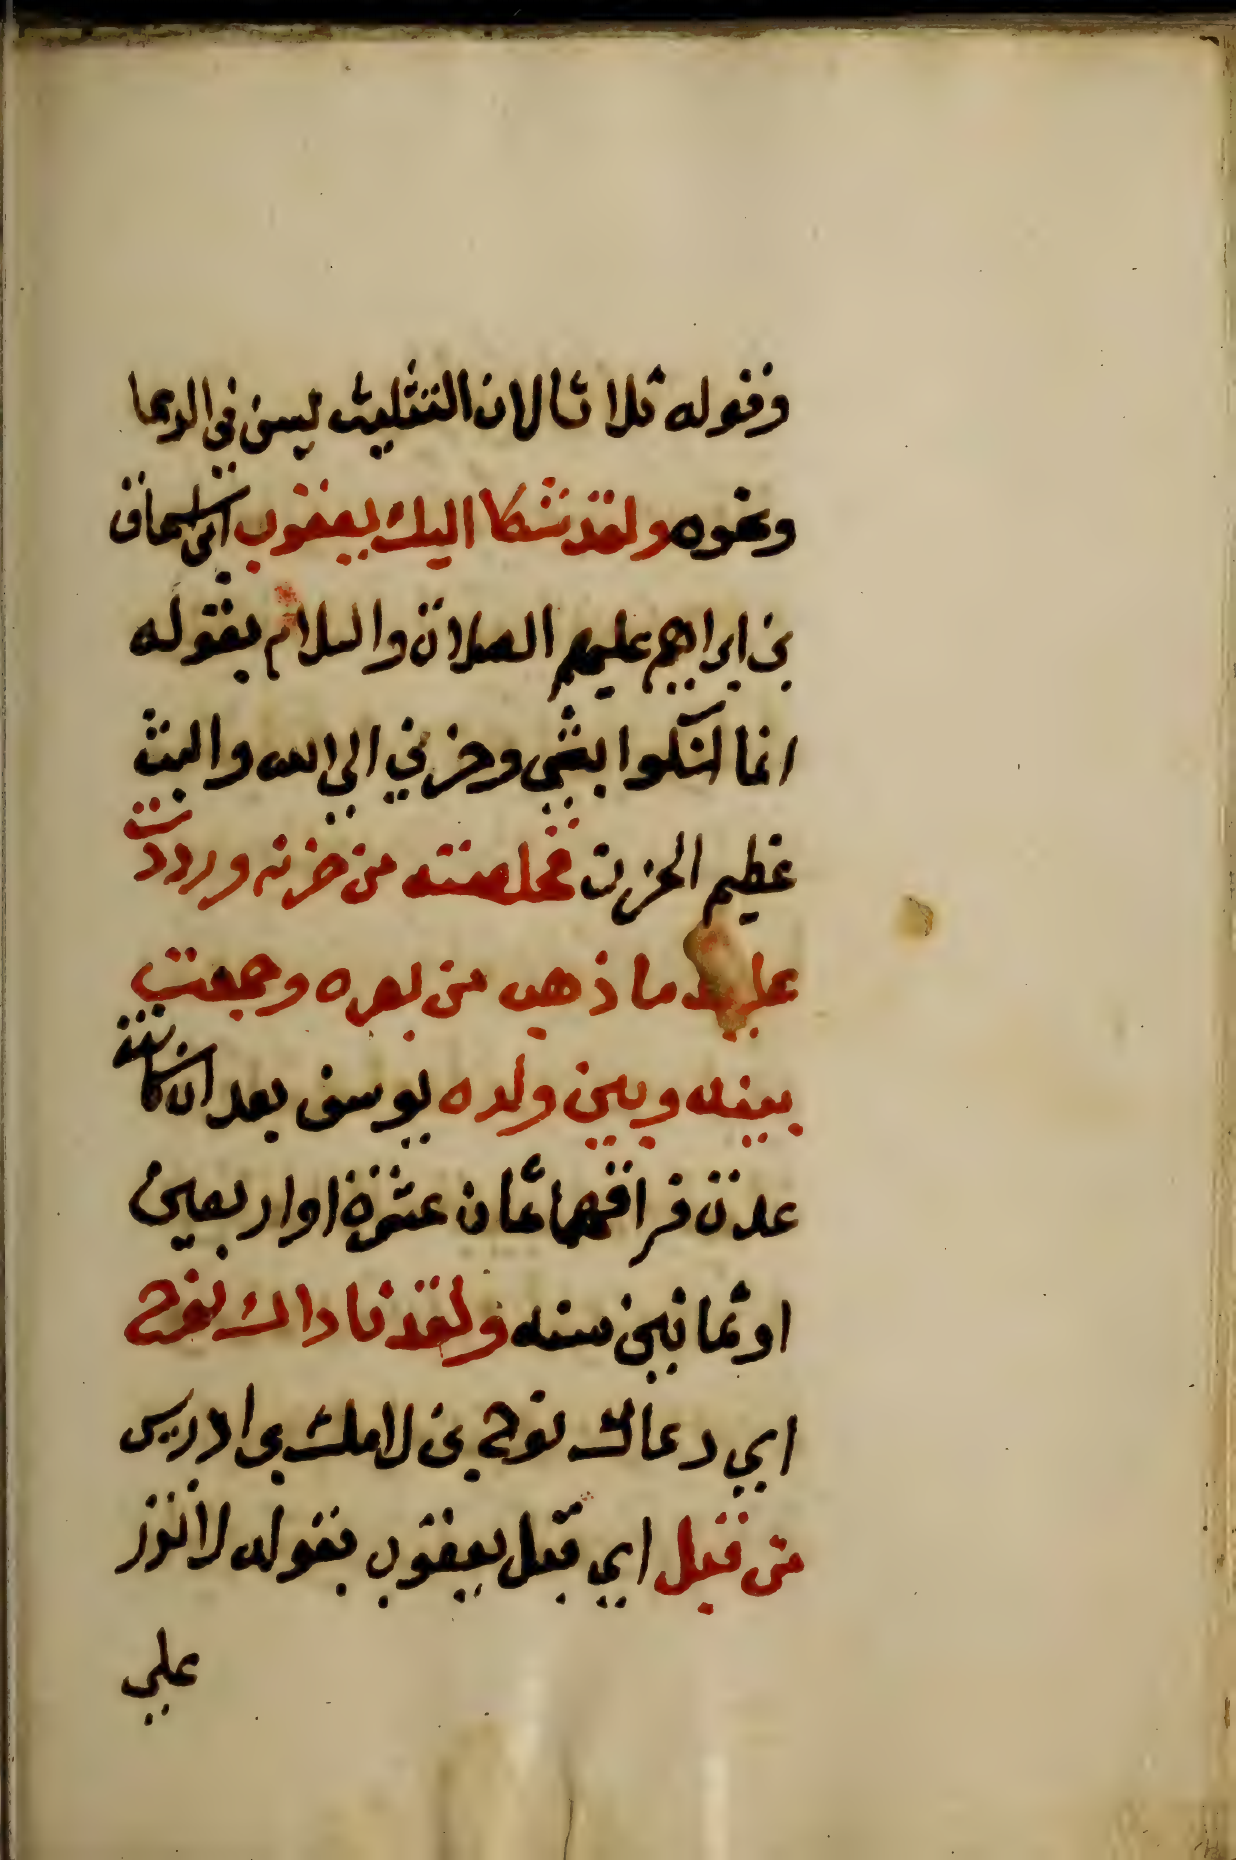 وقوله ثلاثا لان التثليث ليسن في الدعا
ونحوه ولقد شكا اليك يعقوب ابن اسحاق
بن ابراهيم عليهم الصلاة والسلام بقوله
انما اشكوا بثي وحزني الي الله والبث
عظيم الحزن فخلصته من حزنه ورددت
عليه ما ذهب من بصره وجمعت
بينه وبين ولده يوسف بعد ان كانت
عدة فراقهما ثمان عشرة او اربعين
او ثمانين سنه ولقد ناداك نوح
اي دعاك نوح بن لامك بن ادريس
من قبل اي قبل يعقوب بقوله لا تذر
علي